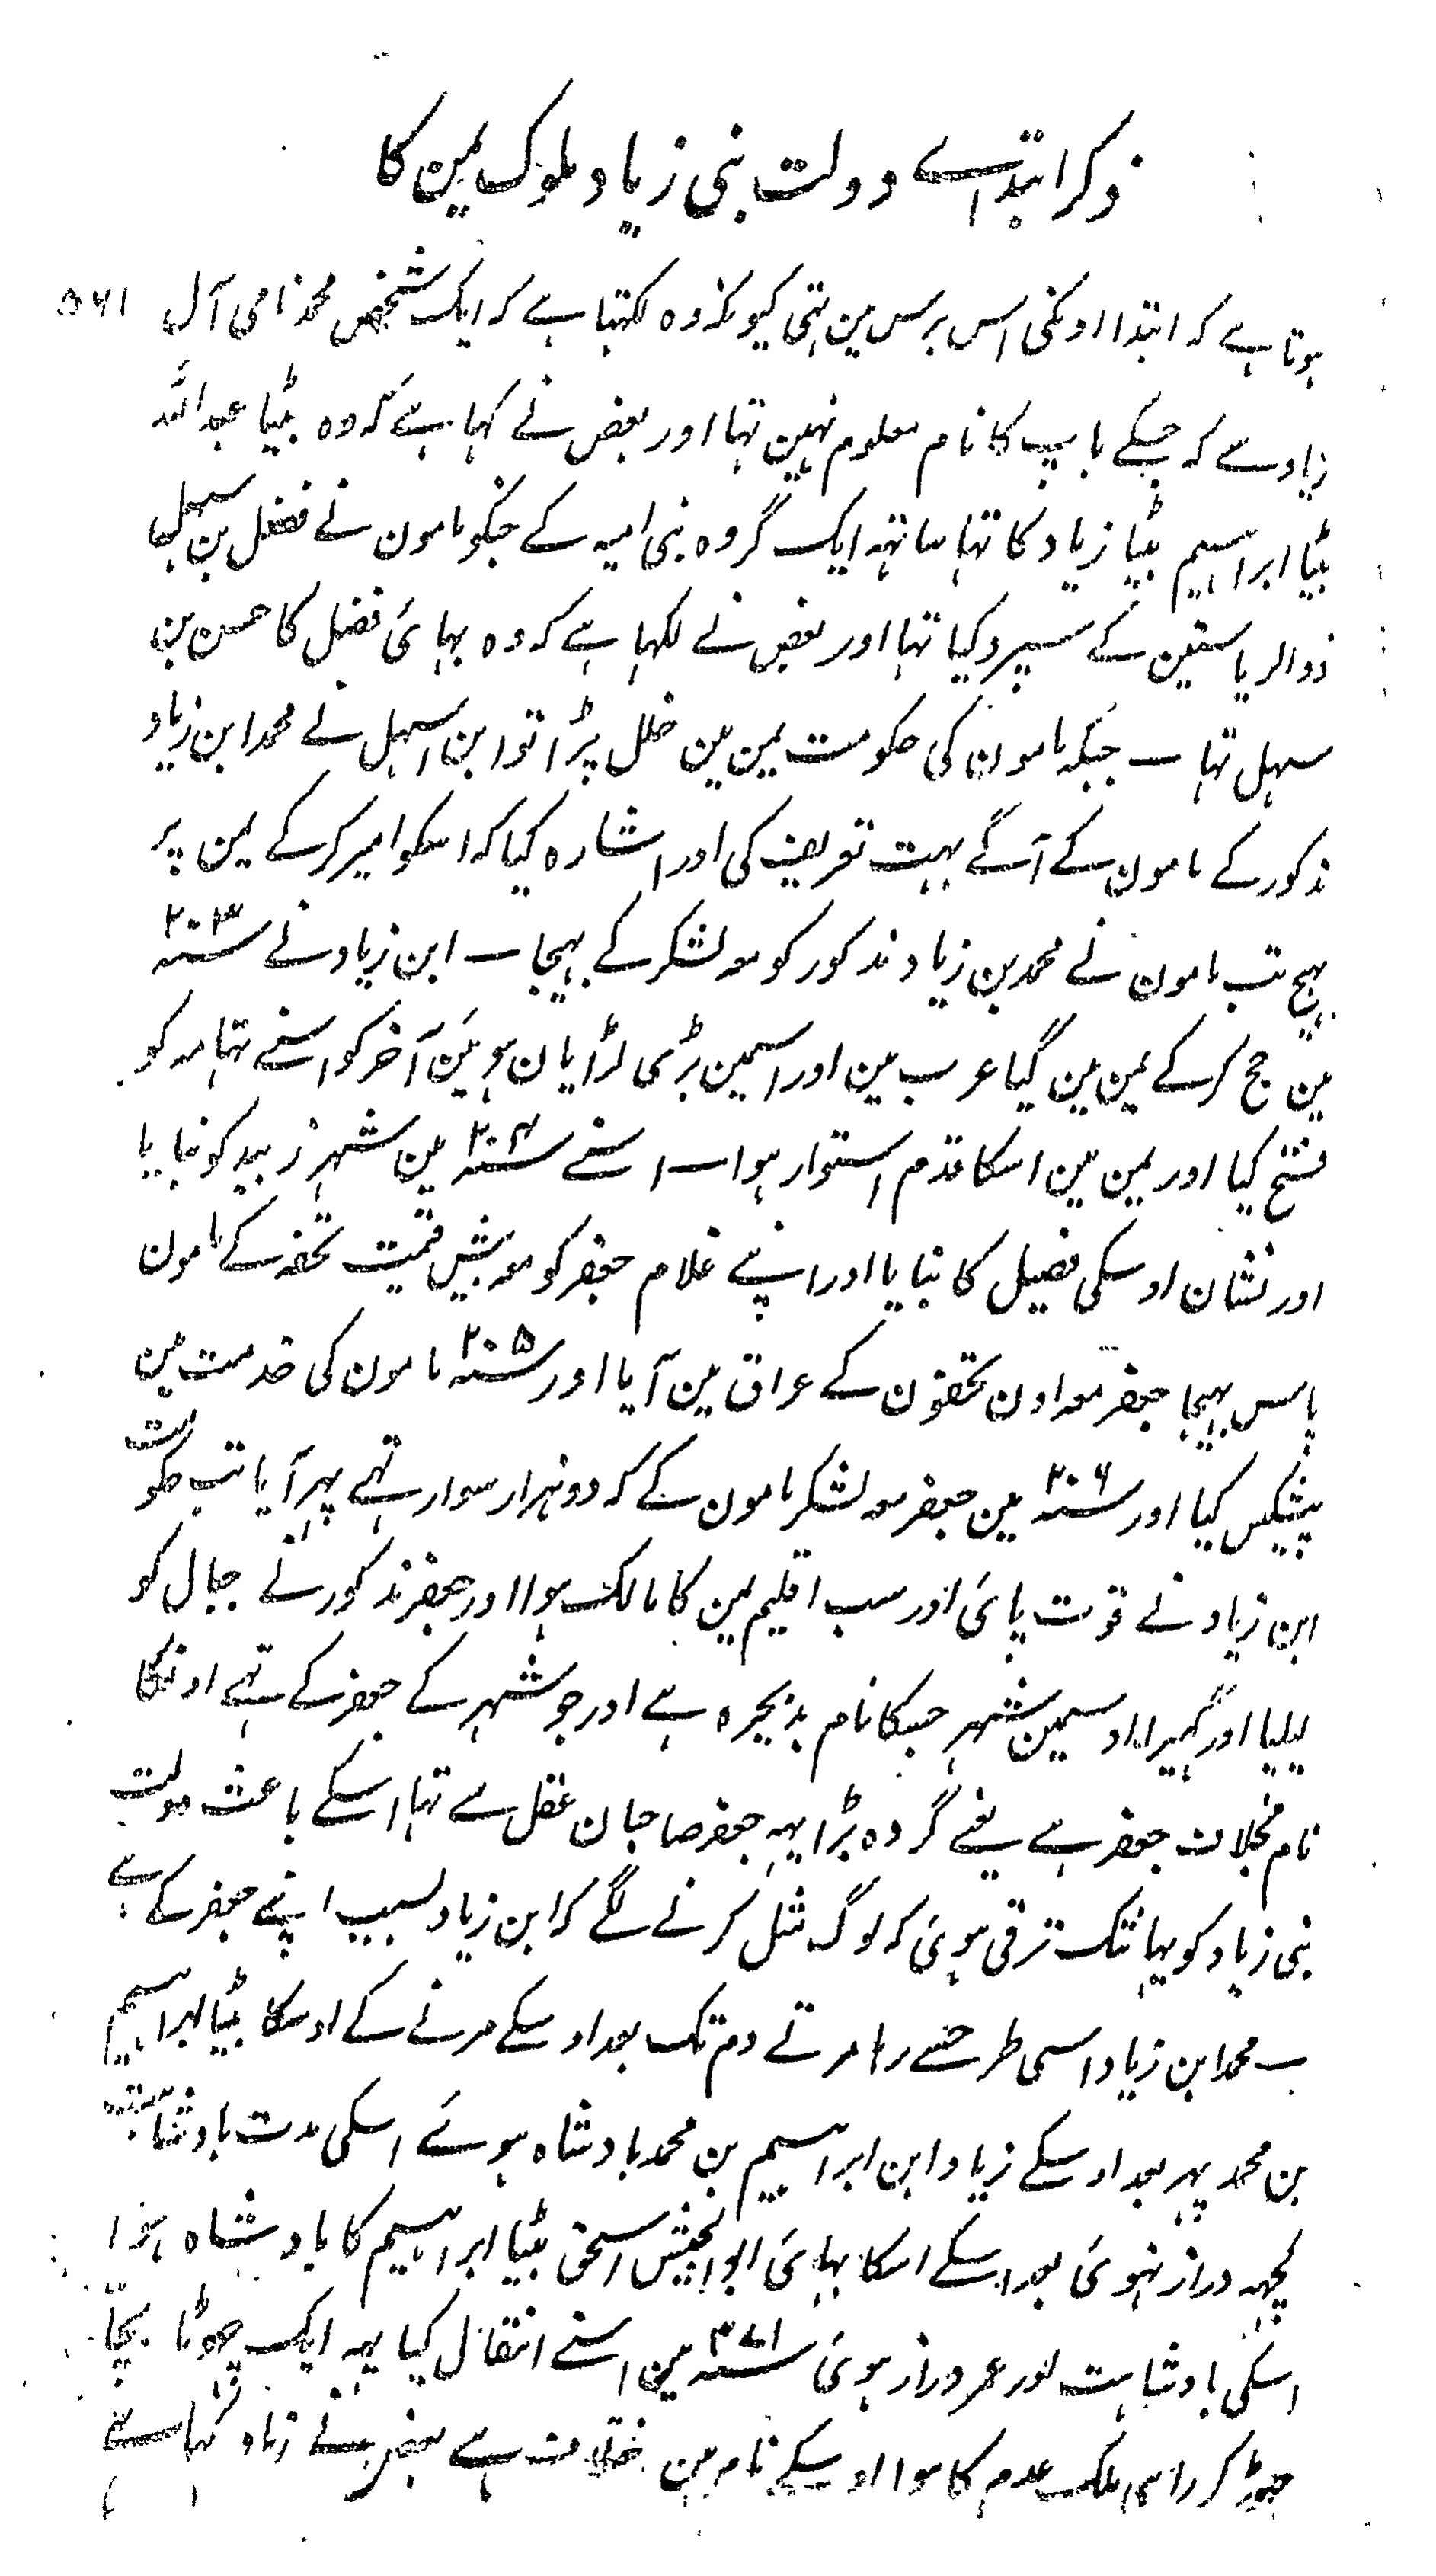 ذکر ابتداے دولت بنی زیاد ملوک یمن کا
۵۶۱
ہوتا ہے کہ ابتدا اونکی اس برس مین تہی کیونکہ وہ لکہتا ہے کہ ایک شخص محمد نامی آل
زیاد سے کہ جسکے باپ کا نام معلوم نہین تہا اور بعض نے کہا ہے کہ وہ بیٹا عبداللہ
بیٹا ابراہیم بیٹا زیاد کا تہا ساتہہ ایک گروہ بنی امیہ کے جنکو مامون نے فضل بن سہل
ذوالریاستین کے سپرد کیا تہا اور بعض نے لکہا ہے کہ وہ بہائی فضل کا حسن بن
سہل تہا ۔ جبکہ مامون کی حکومت یمن مین خلل پڑا تو ابن سہل نے محمد ابن زیاد
مذکور کے مامون کے آگے بہت تعریف کی اور اشارہ کیا کہ اسکو امیر کرکے یمن پر
بہیج تب مامون نے محمد بن زیاد مذکور کو معہ لشکر کے بہیجا ۔ ابن زیاد نے سنہ ۲۰۳
مین حج کرکے یمن مین گیا عرب مین اور اسمین بڑی لڑایان ہوئین آخر کو اسنے تہامہ کو
فتح کیا اور یمن مین اسکا قدم استوار ہوا ۔ اسنے سنہ ۲۰۴ مین شہر زبید کو بنایا
اور نشان اوسکی فصیل کا بنایا اور اپنے غلام جعفر کو معہ بیش قیمت تحفہ کے مامون
پاس بہیجا جعفر معہ اون تحفون کے عراق مین آیا اور سنہ ۲۰۵ مامون کی خدمت مین
پیشکس کیا اور سنہ ۲۰۶ مین جعفر معہ لشکر مامون کے کہ دو ہزار سوار تہے پہر آیا تب حکومت
ابن زیاد نے قوت پائی اور سب اقلیم یمن کا مالک ہوا اور جعفر مذکور نے جبال کو
لیلیا اور گہیرا اوسمین شہر جسکا نام مذیجرہ ہے اور جو شہر کے جعفر کے تہے اونکا
نام مخلاف جعفر ہے یعنے گروہ بڑا یہہ جعفر صاحبان عقل سے تہا اسکے باعث دولت
بنی زیاد کو یہانتک ترقی ہوئی کہ لوگ مثل کرنے لگے کہ ابن زیاد بسبب اپنے جعفر کے ہے
۔ محمد ابن زیاد اسی طرحسے رہا مرتے دم تک بعد اوسکے مرنے کے اوسکا بیٹا ابراہیم
بن محمد پہر بعد اوسکے زیاد ابن ابراہیم بن محمد بادشاہ ہوئے اسکی مدت بادشاہت
کچہہ دراز نہوئی بعد اسکے اسکا بہائی ابوالجیش اسحق بیٹا ابراہیم کا بادشاہ ہوا
اسکی بادشاہت اور عمر دراز ہوئی سنہ ۳۷۱ مین اسنے انتقال کیا یہہ ایک چہوٹا بچا
چہوڑ کر راہی ملک عدم کا ہوا اوسکے نام مین اختلاف ہے بعض نے زیاد کہا ہے